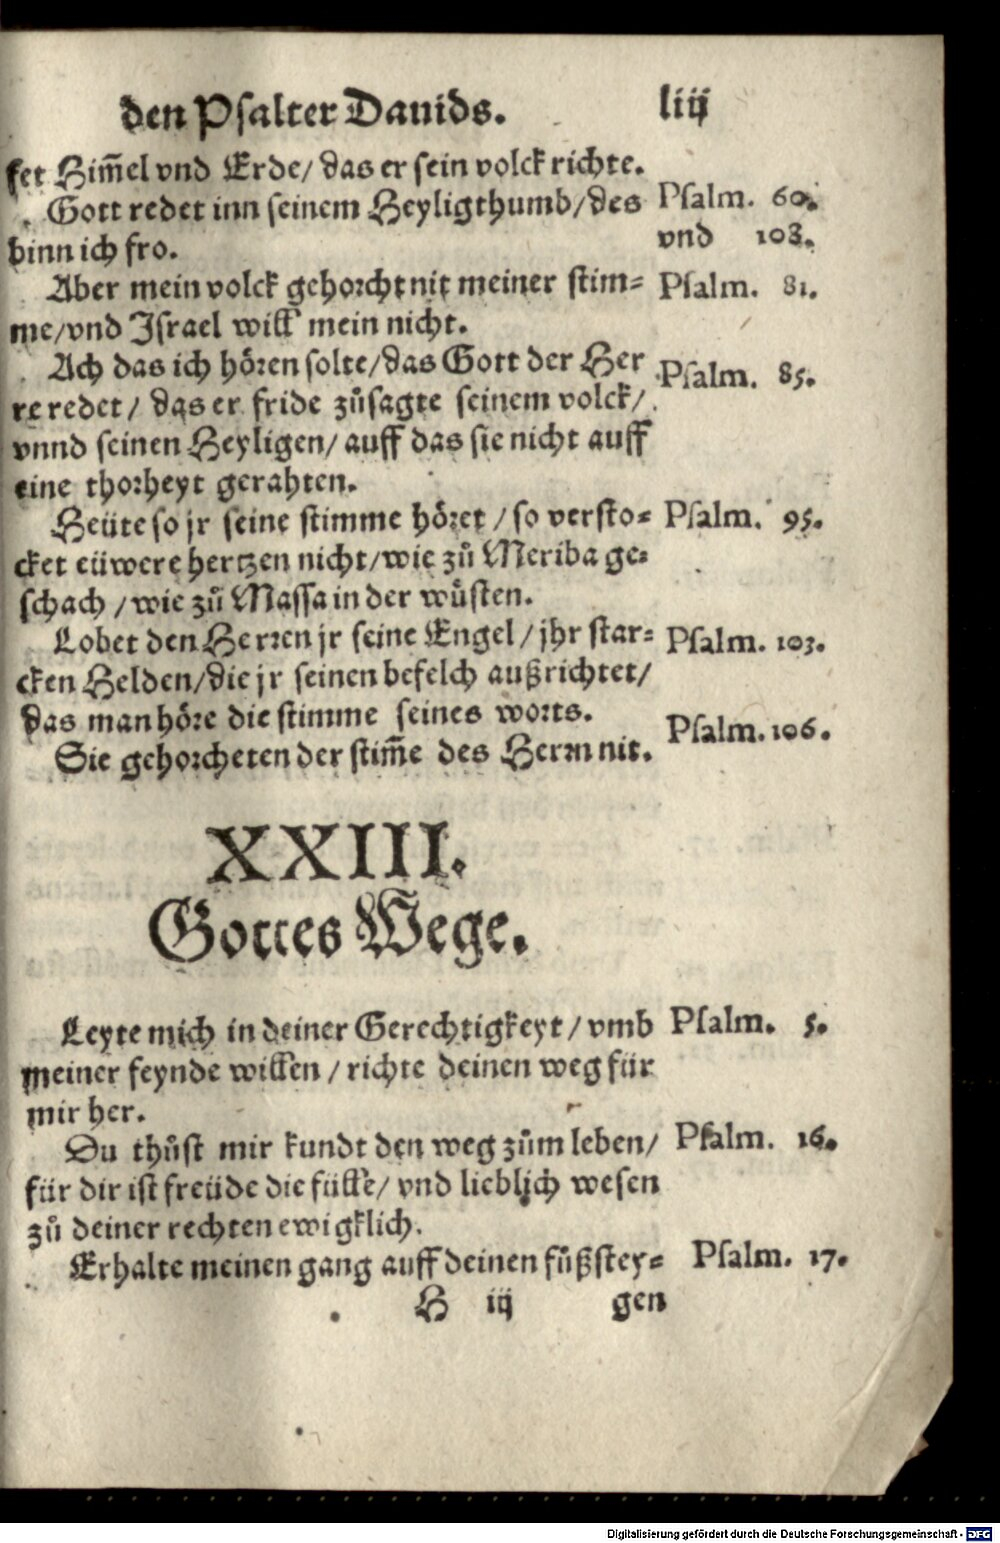 den Psalter Dauids. liij
fet Him̄el vnd Erde/ das er sein volck richte.
Gott redet inn seinem Heyligthumb/des Psalm. 60.
binn ich fro. vnd 108.
Aber mein volck gehorcht nit meiner stim= Psalm. 81.
me/vnd Israel will mein nicht.
Ach das ich hören solte/das Gott der Her Psalm. 85.
re redet/ das er fride zůsagte seinem volck/
vnnd seinen Heyligen/ auff das sie nicht auff
eine thorheyt gerahten.
Heüte so jr seine stimme höret / so versto= Psalm. 95.
cket eüwere hertzen nicht/wie zů Meriba ge=
schach /wie zů Massa in der wůsten.
Lobet den Herren jr seine Engel / jhr star= Psalm. 103.
cken Helden/die jr seinen befelch außrichtet/
das man höre die stimme seines worts.
Sie gehorcheten der stim̄e des Herrn nit. Psalm. 106.
XXIII.
Gottes Wege.
Leyte mich in deiner Gerechtigkeyt / vmb Psalm. 5.
meiner feynde willen / richte deinen weg für
mir her.
Du thůst mir kundt den weg zům leben/ Psalm. 16.
für dir ist freüde die fülle/ vnd lieblich wesen
zů deiner rechten ewigklich.
Erhalte meinen gang auff deinen fůßstey= Psalm. 17.
H iij gen
Digitalisierung gefördert durch die Deutsche Forschungsgemeinschaft - DFG